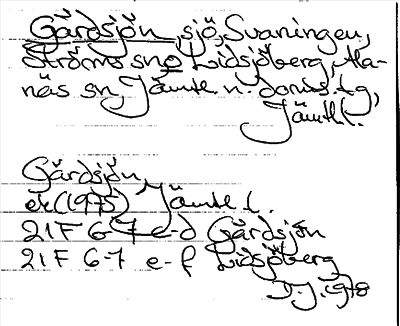 Gärdsjön, sjö, Svaningen,
Ströms sn o Lidsjöberg, Ala-
näs sn, Jämtl. n. doms.tg,
Jämtl.
Gärdsjön,
ek (1975) Jämtl l.
21F 6-7 c-d Gärdsjön
21F 6-7 e-f Lidsjöberg
1978